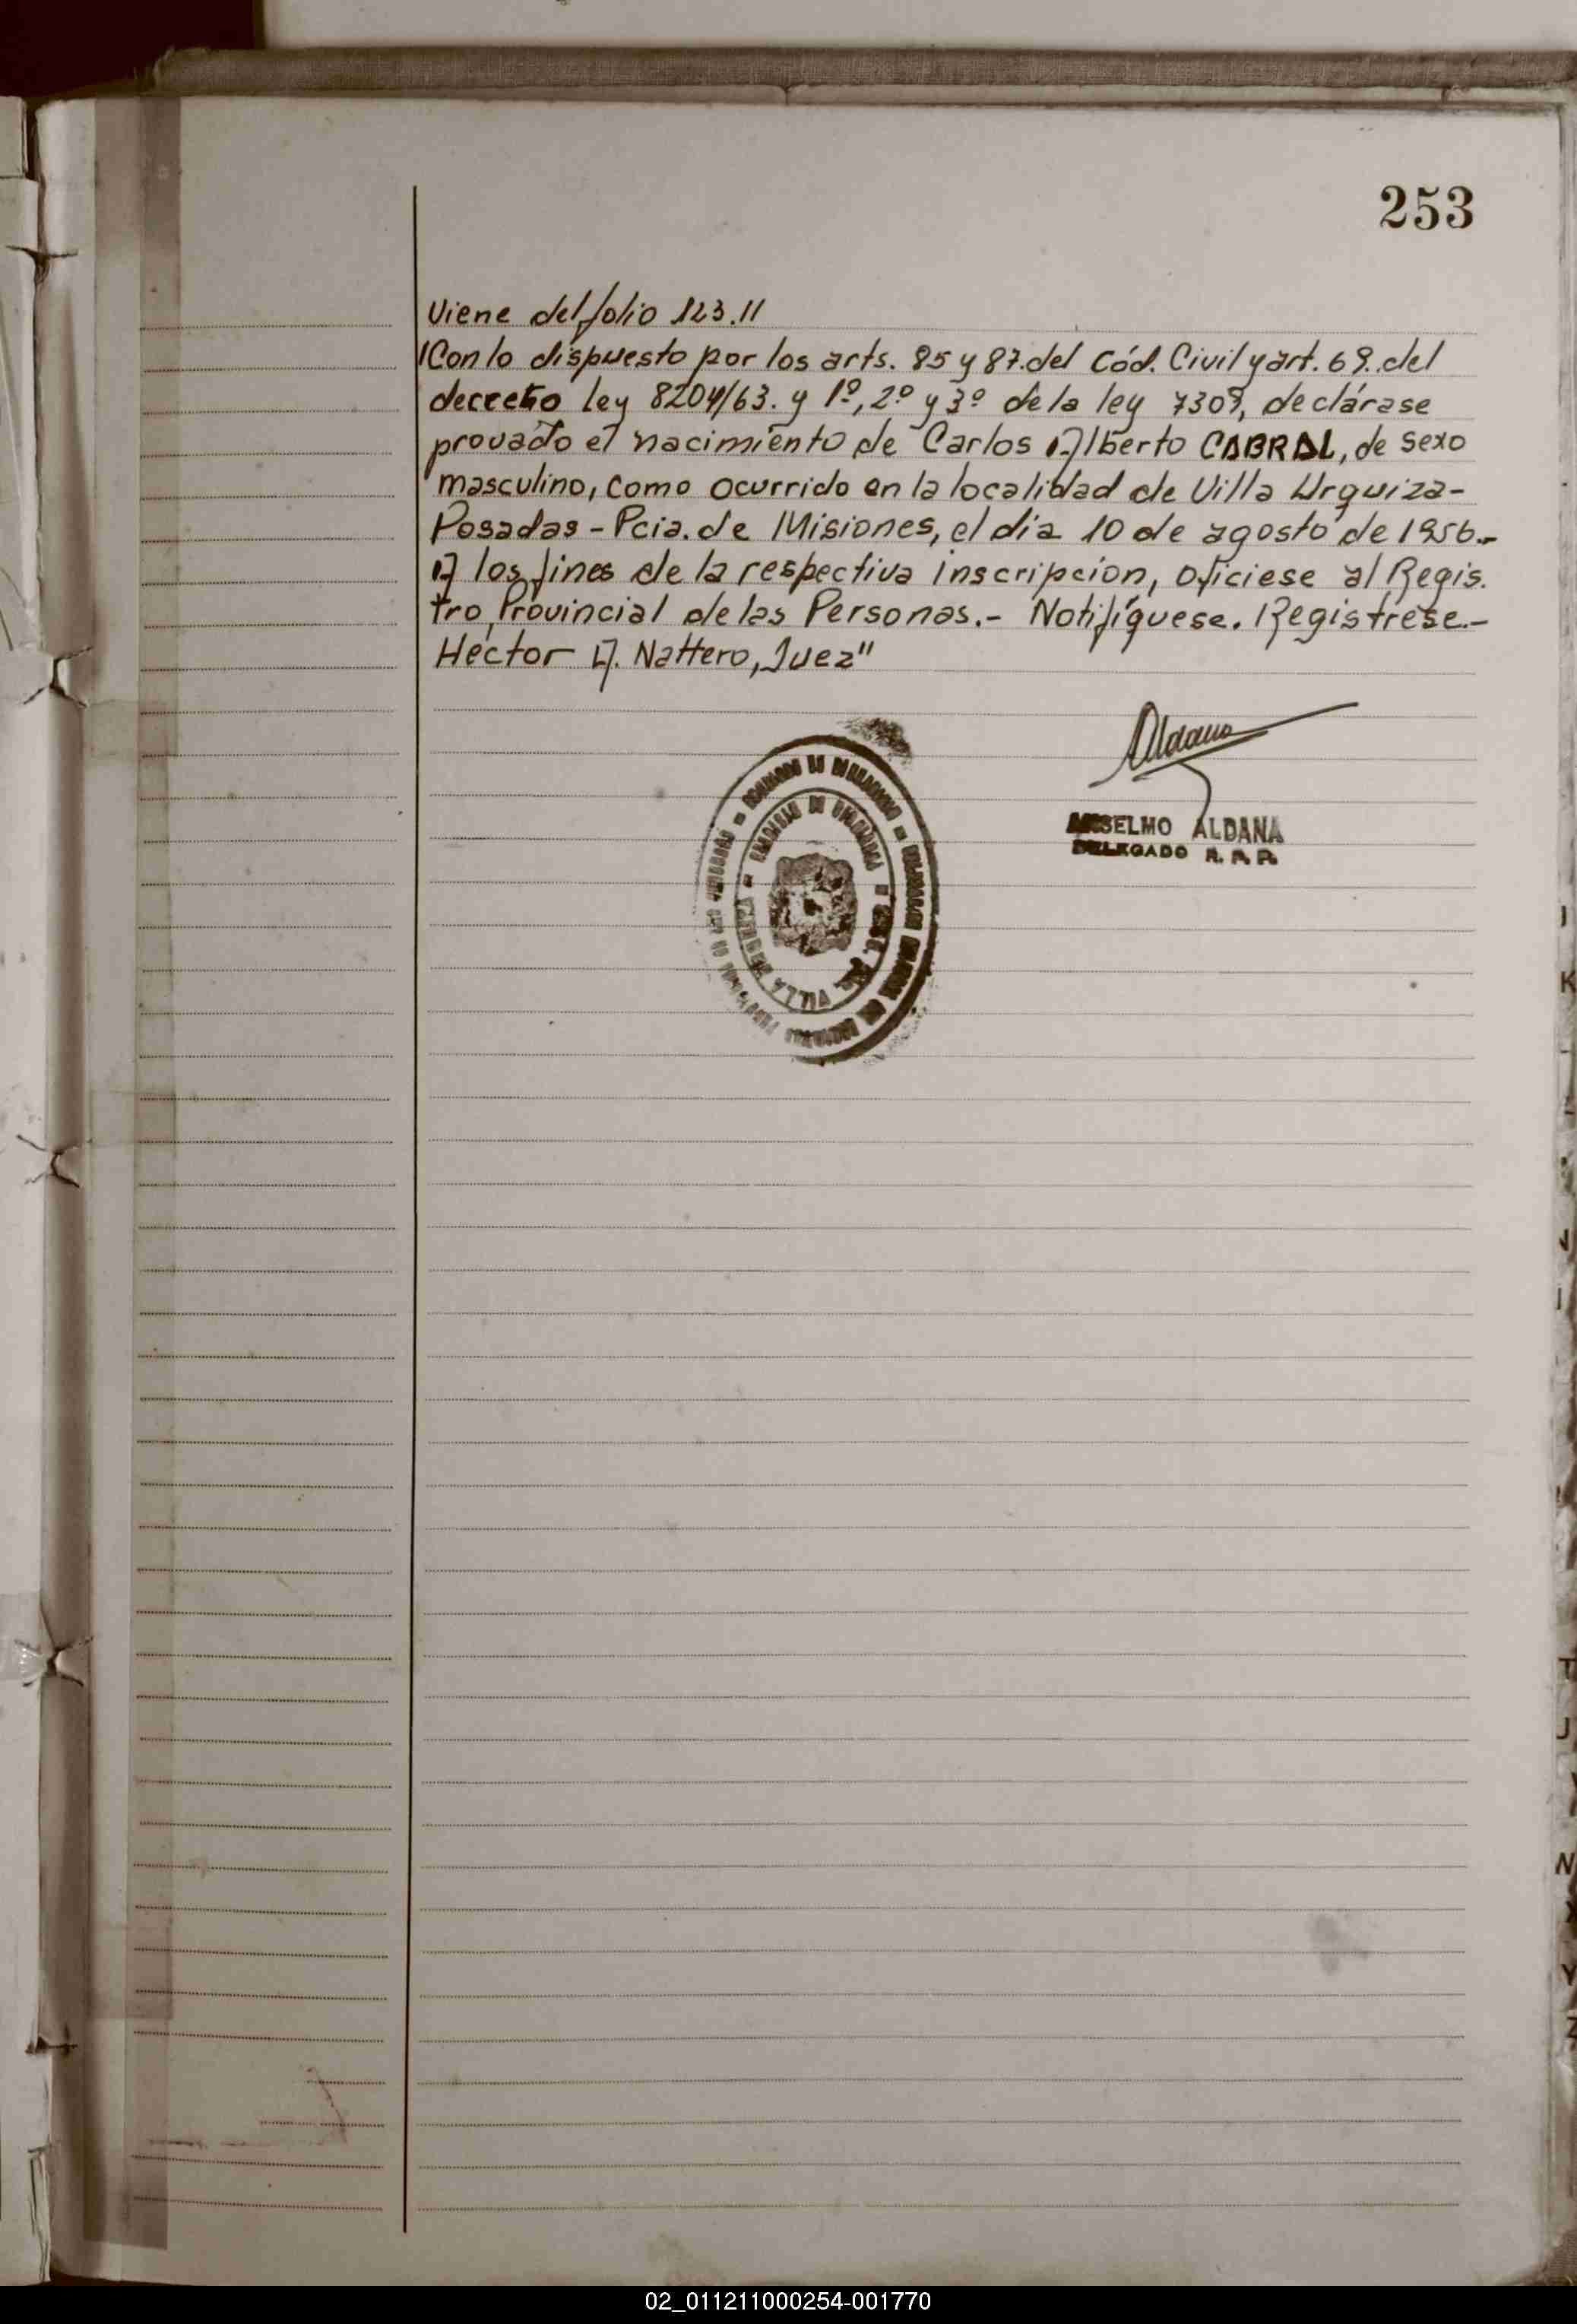 253
Viene del folio 123.//
Con lo dispuesto por los arts. 85 y 87. del Cód. Civil y art. 69. del
decreto ley 8204/63. y 1º, 2º y 3º de la ley 7309, declárase
provado el nacimiento de Carlos Alberto CABRAL, de sexo
masculino, como ocurrido en la localidad de Villa Urquiza-
Posadas - Pcia. de Misiones, el día 10 de agosto de 1956.-
A los fines de la respectiva inscripcion, ofíciese al Regis.
tro Provincial de las Personas.- Notifíquese. Regístrese.-
Héctor A. Nattero, Juez"
Aldana
ANSELMO ALDANA
DELEGADO R. P. P.
VILLA
K
J
N
Y
Z
02_011211000254-001770